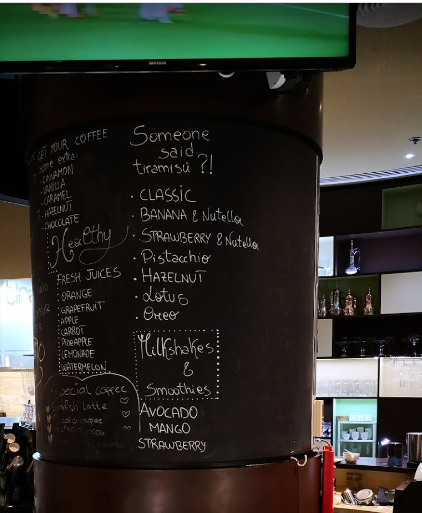 SAMSUNG
GET YOUR COFFEE
some extra:
- CINNAMON
- VANILLA
- CARAMEL
- HAZELNUT
- CHOCOLATE
Healthy
FRESH JUICES
ORANGE
GRAPEFRUIT
APPLE
CARROT
PINEAPPLE
LEMONADE
WATERMELON
Special coffee
Spanish Latte
Someone
said
tiramisu ?!
· CLASSIC
· BANANA & Nutella
· STRAWBERRY & Nutella
· Pistacchio
· HAZELNUT
· Lotus
· Oreo
Milkshakes
&
Smoothies
AVOCADO
MANGO
STRAWBERRY